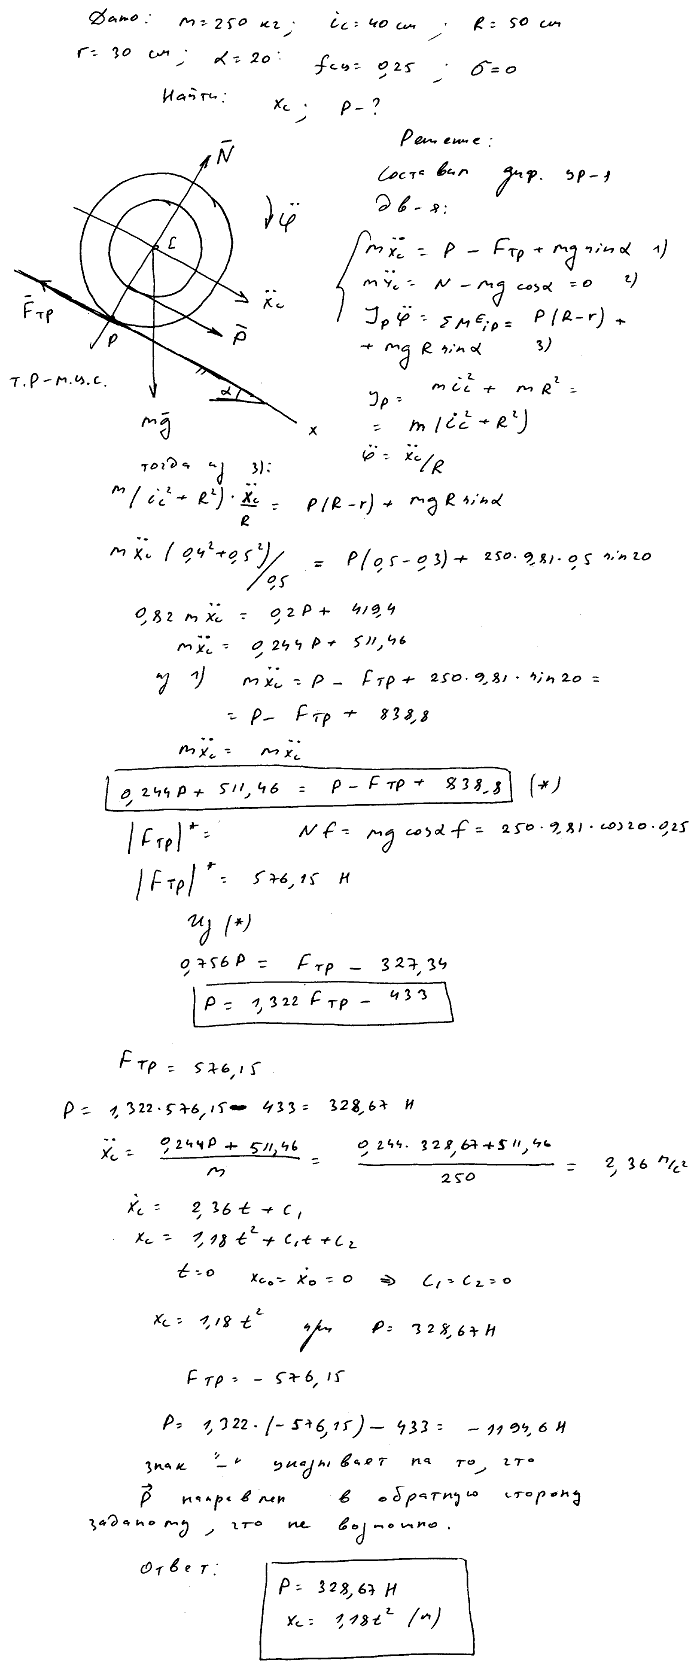 Дано: m=250 кг; ic=40 cm; R=50 cm
r=30 cm; α=20°; fсц=0,25; δ=0
Найти: xc; P-?
Решение:
Составим диф. ур-я
дв-я:
mẍc = P - Fтр + mg sinα 1)
mÿc = N - mg cosα = 0 2)
Jp φ̈ = ΣMᴱip = P(R-r) +
+ mg R sinα 3)
Jp = m ic² + mR² =
= m(ic² + R²)
φ̈ = ẍc/R
N̄
C
φ̈
ẍc
F̄тр
P
P̄
т.P-м.ц.с.
α
mḡ
x
тогда из 3):
m(ic² + R²) · ẍc/R = P(R-r) + mgR sinα
mẍc(0,4²+0,5²)/0,5 = P(0,5-0,3) + 250·9,81·0,5 sin20
0,82 mẍc = 0,2P + 419,4
mẍc = 0,244P + 511,46
из 1) mẍc = P - Fтр + 250·9,81·sin20 =
= P - Fтр + 838,8
mẍc = mẍc
0,244P + 511,46 = P - Fтр + 838,8 (*)
|Fтр|* = Nf = mg cosα f = 250·9,81·cos20·0,25
|Fтр|* = 576,15 Н
Из (*)
0,756P = Fтр - 327,34
P = 1,322 Fтр - 433
Fтр = 576,15
P = 1,322·576,15 - 433 = 328,67 Н
ẍc = (0,244P + 511,46)/m = (0,244·328,67+511,46)/250 = 2,36 м/с²
ẋc = 2,36t + C₁
xc = 1,18t² + C₁t + C₂
t=0 xc₀ = ẋ₀ = 0 ⇒ C₁=C₂=0
xc = 1,18t² при P = 328,67 Н
Fтр = -576,15
P = 1,322·(-576,15) - 433 = -1194,6 Н
знак "-" указывает на то, что
P⃗ направлен в обратную сторону
заданому, что не возможно.
Ответ:
P = 328,67 Н
xc = 1,18t² (м)